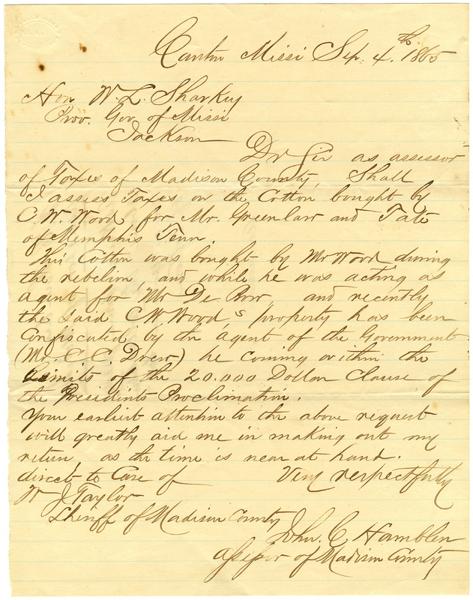 Canton Missi Sep. 4th 1865
Hon W. L. Sharkey
Prov. Gov. of Missi
Jackson
Dr Sir as assessor
of Taxes of Madison County, Shall
I assess Taxes on the Cotton bought by
C. W. Wood for Mr. Greenlaw and Tate
of Memphis Tenn.
This Cotton was bought by Mr Wood during
the rebelion and while he was acting as
agent for Mr De Bow and recently
the said C W Wood's property has been
confiscated by the agent of the Government
(Mr. C. C. Drew) he coming within the
Limits of the 20.000 Dollar Clause of
the Presidents Proclimation.
Your earliest attention to the above request
will greatly aid me in making out my
return, as the time is near at hand.
direct to Care of Very respectfully
W J Taylor
Sheriff of Madison County
John. C. Hamblen
Assessor of Madison County